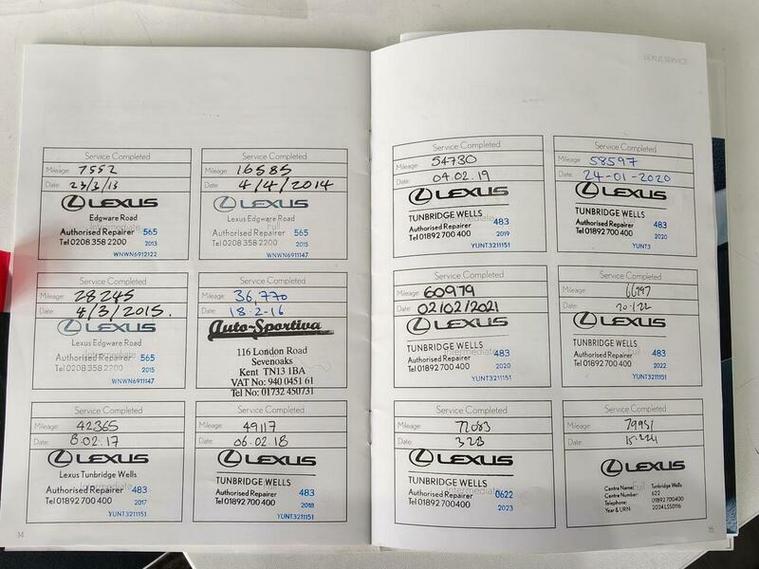 LEXUS SERVICE
Service Completed
Mileage: 7552
Date: 23/3/13
LEXUS
Edgware Road
Intermediate
Authorised Repairer 565
Tel 0208 358 2200 2013
WNWN6912122
Service Completed
16585
Date: 4/4/2014
LEXUS
Lexus Edgware Road
Full
Authorised Repairer 565
Tel 0208 358 2200 2015
WNWN6911147
Service Completed
Mileage: 28245
Date: 4/3/2015.
LEXUS
Lexus Edgware Road
Intermediate
Authorised Repairer 565
Tel 0208 358 2200 2015
WNWN6911147
Service Completed
Mileage: 36,770
Date: 18-2-16
Auto-Sportiva
116 London Road
Sevenoaks
Kent TN13 1BA
VAT No: 940 0451 61
Tel No: 01732 450731
Service Completed
Mileage: 42365
Date: 8.02.17
LEXUS
Lexus Tunbridge Wells
Intermediate
Authorised Repairer 483
Tel 01892 700 400 2017
YUNT3211151
Service Completed
Mileage: 49117
Date: 06.02.18
LEXUS
TUNBRIDGE WELLS
Authorised Repairer 483
Tel 01892 700 400 2018
YUNT3211151
14
Service Completed
Mileage: 54730
Date: 04.02.19
LEXUS
TUNBRIDGE WELLS
Intermediate
Authorised Repairer 483
Tel 01892 700 400 2019
YUNT3211151
Service Completed
Mileage: 58597
Date: 24-01-2020
LEXUS
TUNBRIDGE WELLS
Authorised Repairer 483
Tel 01892 700 400 2020
YUNT3
Service Completed
Mileage: 60979
Date: 02/02/2021
LEXUS
TUNBRIDGE WELLS
Intermediate
Authorised Repairer 483
Tel 01892 700 400 2020
YUNT3211151
Service Completed
Mileage:
Date:
LEXUS
TUNBRIDGE WELLS
Authorised Repairer 483
Tel 01892 700 400 2022
YUNT3211151
Service Completed
Mileage: 72083
Date: 3 2 23
LEXUS
TUNBRIDGE WELLS
Intermediate
Authorised Repairer 0622
Tel 01892 700 400 2023
Service Completed
Mileage:
Date:
LEXUS
Centre Name: Tunbridge Wells
Centre Number: 622
Telephone: 01892 700400
Year & URN: 2024 LSS0116